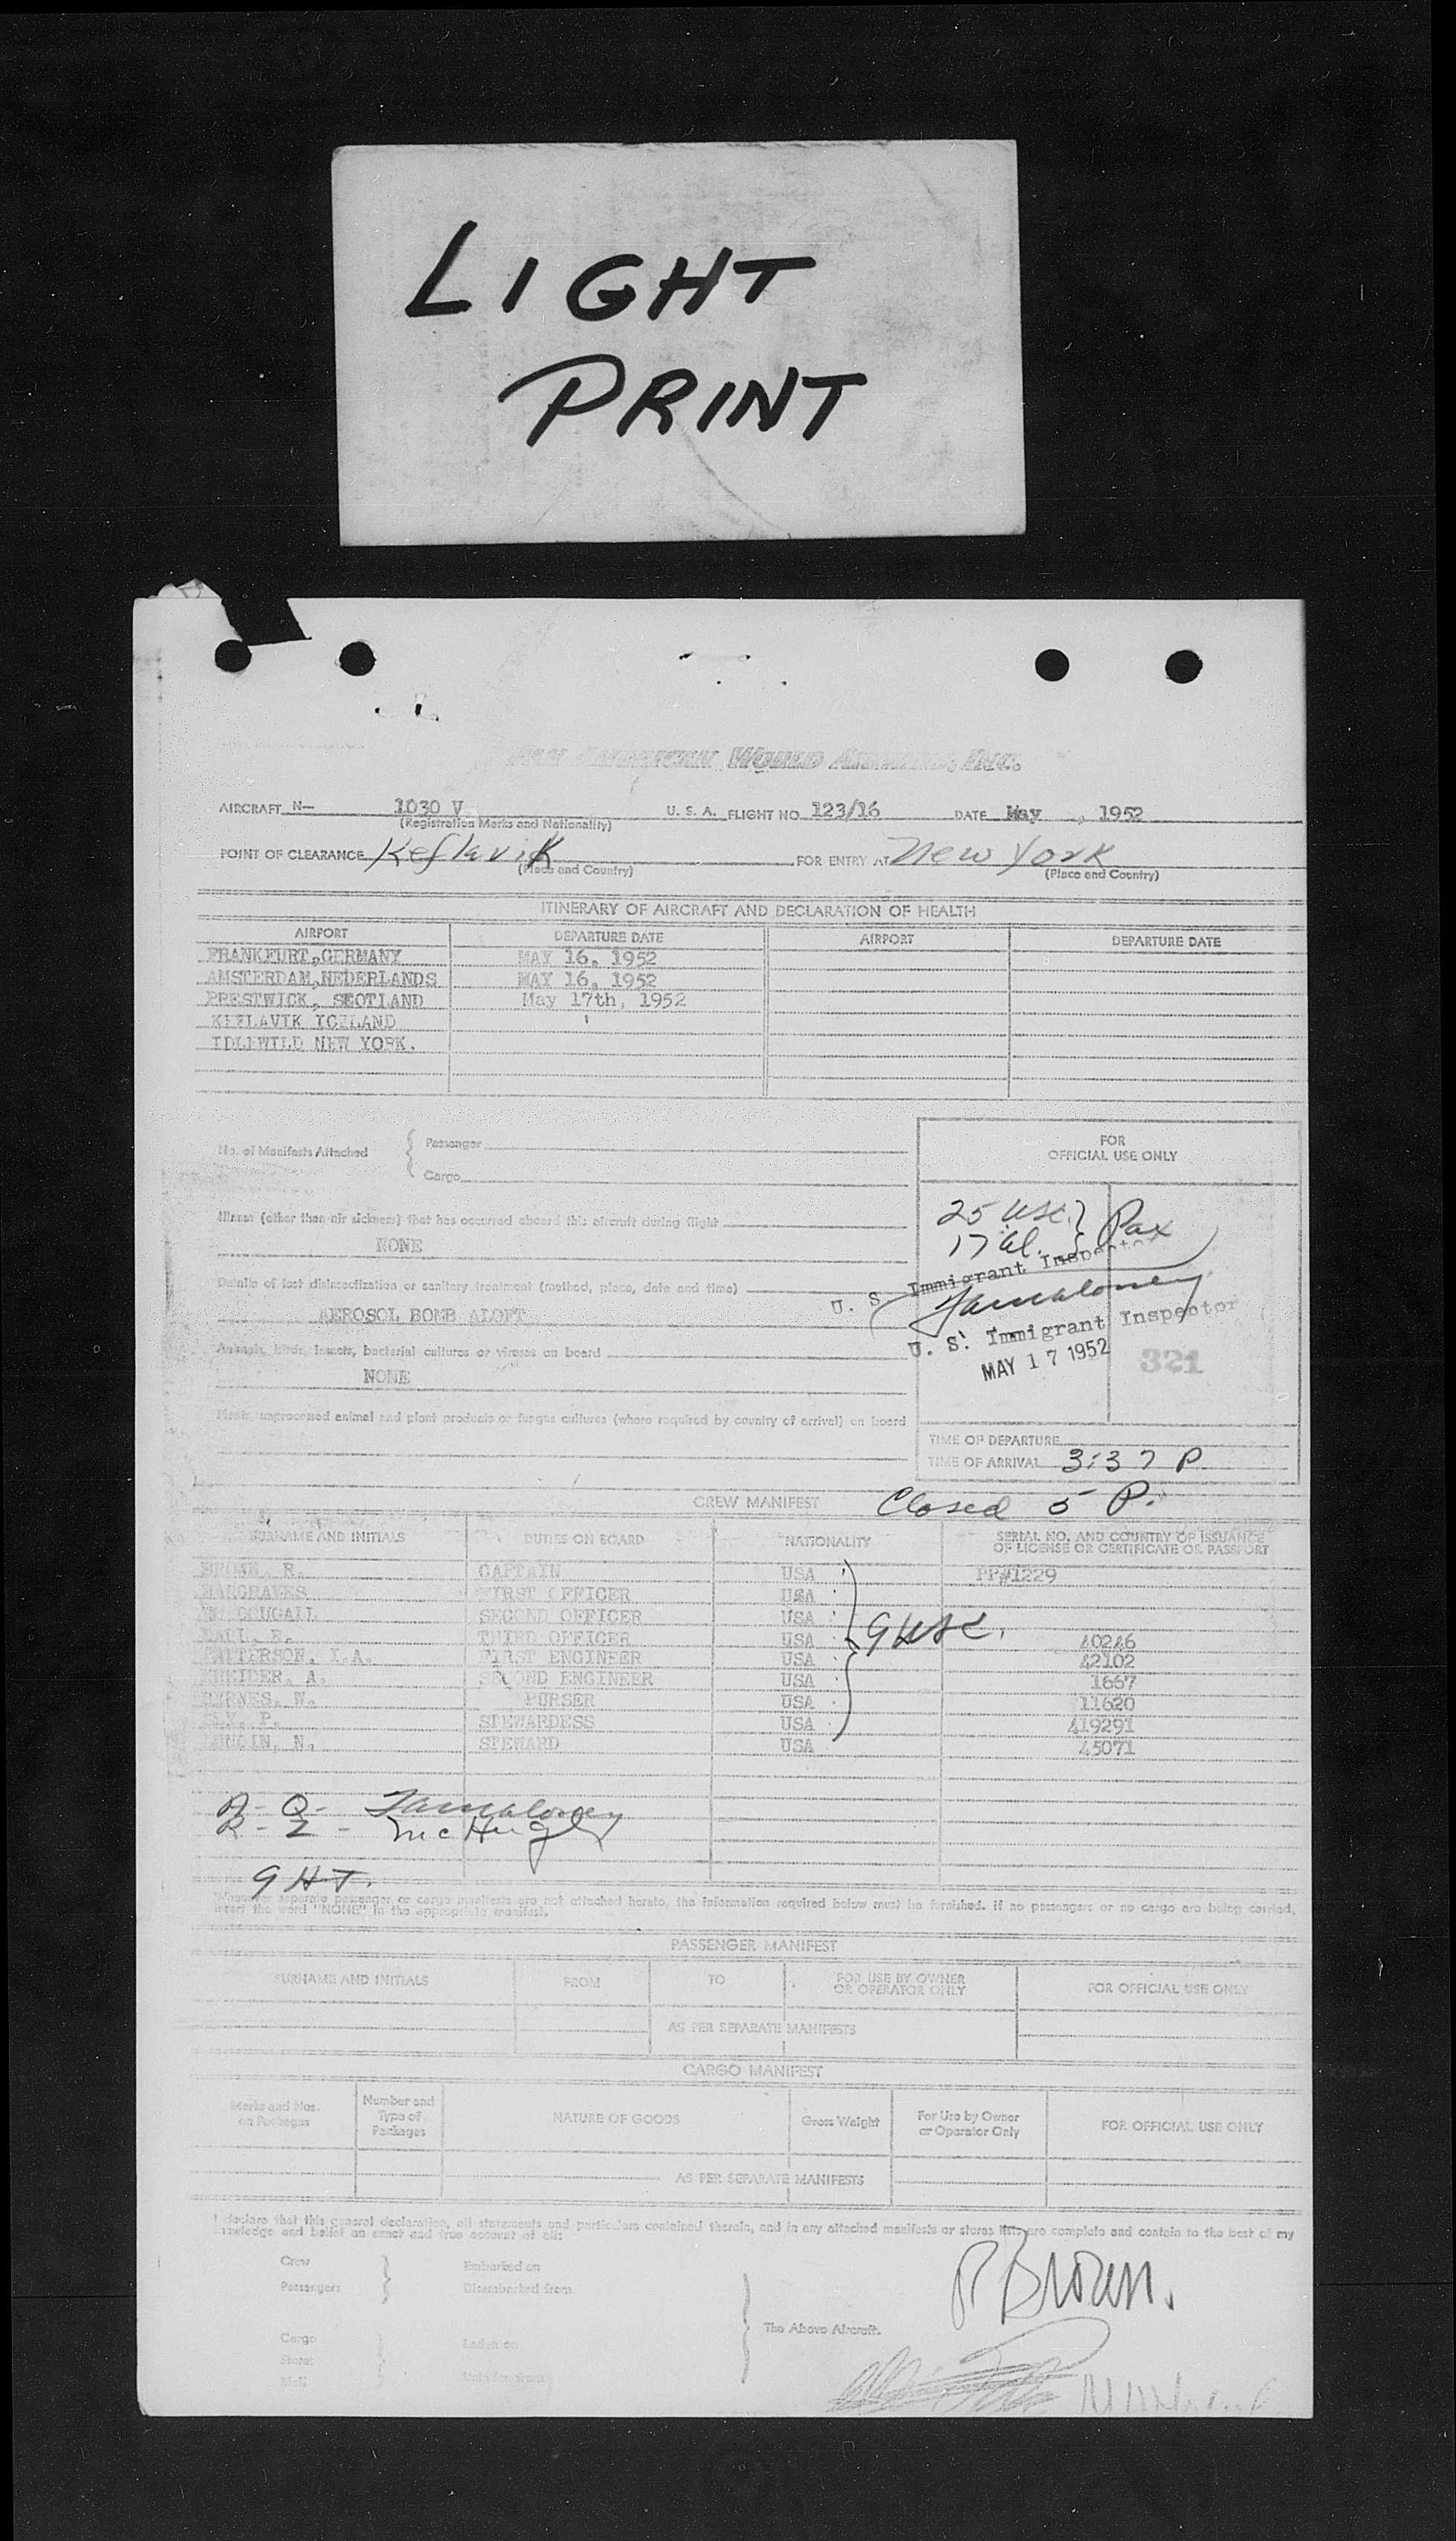 LIGHT
PRINT
PAN AMERICAN WORLD AIRWAYS, INC.
AIRCRAFT N— 1030 V U. S. A. FLIGHT NO. 123/16 DATE May , 1952
(Registration Marks and Nationality)
POINT OF CLEARANCE Keflavik FOR ENTRY AT New York
(Place and Country) (Place and Country)
ITINERARY OF AIRCRAFT AND DECLARATION OF HEALTH
AIRPORT DEPARTURE DATE AIRPORT DEPARTURE DATE
FRANKFURT, GERMANY MAY 16, 1952
AMSTERDAM, NEDERLANDS MAY 16, 1952
PRESTWICK, SCOTLAND May 17th, 1952
KEFLAVIK ICELAND
IDLEWILD NEW YORK.
No. of Manifests Attached
Passenger
Cargo
FOR
OFFICIAL USE ONLY
Illness (other than air sickness) that has occurred aboard this aircraft during flight
NONE
Details of last disinsectization or sanitary treatment (method, place, date and time)
AEROSOL BOMB ALOFT
Animals, birds, insects, bacterial cultures or viruses on board
NONE
Plants, unprocessed animal and plant products or fungus cultures (where required by country of arrival) on board
25 USC } Pax
17 al.
U. S. Immigrant Inspector
U. S. Immigrant Inspector
MAY 17 1952 321
TIME OF DEPARTURE
TIME OF ARRIVAL 3:37 P.
CREW MANIFEST Closed 5 P.
SURNAME AND INITIALS DUTIES ON BOARD NATIONALITY SERIAL NO. AND COUNTRY OF ISSUANCE
OF LICENSE OR CERTIFICATE OR PASSPORT
BROWN, R. CAPTAIN USA PP#1229
HARGRAVES FIRST OFFICER USA
McDOUGALL SECOND OFFICER USA 9 USC.
THIRD OFFICER USA 40246
PATTERSON, I.A. FIRST ENGINEER USA 42102
SECOND ENGINEER USA 1667
BYRNES, W. PURSER USA 11620
STEWARDESS USA 419291
STEWARD USA 45071
McHugh
9 HT.
Whenever separate passenger or cargo manifests are not attached hereto, the information required below must be furnished. If no passengers or no cargo are being carried,
insert the word "NONE" in the appropriate manifest.
PASSENGER MANIFEST
SURNAME AND INITIALS FROM TO FOR USE BY OWNER
OR OPERATOR ONLY FOR OFFICIAL USE ONLY
AS PER SEPARATE MANIFESTS
CARGO MANIFEST
Marks and Nos.
on Packages Number and
Type of
Packages NATURE OF GOODS Gross Weight For Use by Owner
or Operator Only FOR OFFICIAL USE ONLY
AS PER SEPARATE MANIFESTS
I declare that this general declaration, all statements and particulars contained therein, and in any attached manifests or stores lists are complete and contain to the best of my
knowledge and belief an exact and true account of all:
Crew Embarked on
Passengers Disembarked from
The Above Aircraft.
Cargo Laden on
Stores
Mail Unladen from
R Brown.